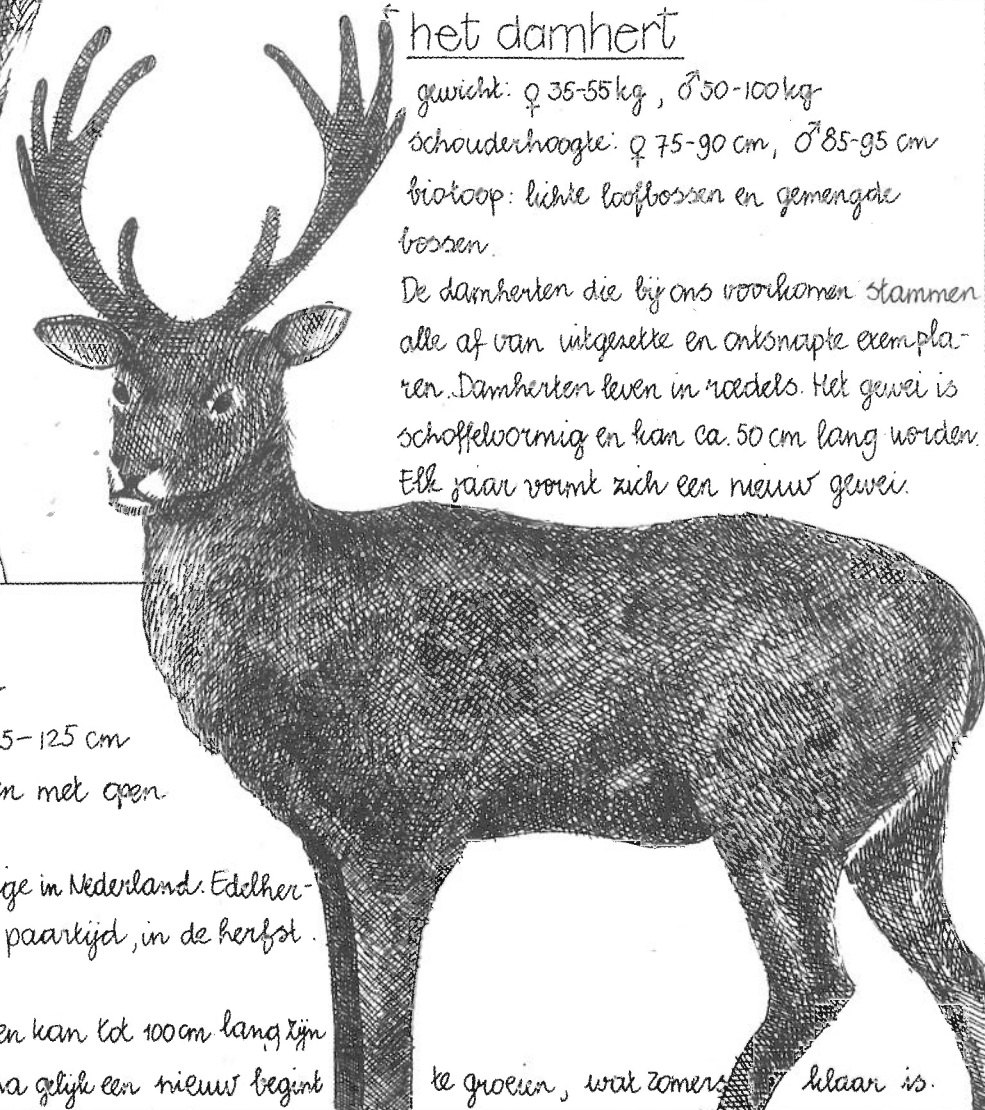 het damhert
gewicht: ♀ 35-55 kg, ♂ 50-100 kg
schouderhoogte: ♀ 75-90 cm, ♂ 85-95 cm
biotoop: lichte loofbossen en gemengde
bossen.
De damherten die bij ons voorkomen stammen
alle af van uitgezette en ontsnapte exempla-
ren. Damherten leven in roedels. Het gewei is
schoffelvormig en kan ca. 50 cm lang worden.
Elk jaar vormt zich een nieuw gewei.
5-125 cm
en met open
ige in Nederland. Edelher-
paartijd, in de herfst.
en kan tot 100 cm lang zijn
na gelijk een nieuw begint te groeien, wat zomers klaar is.